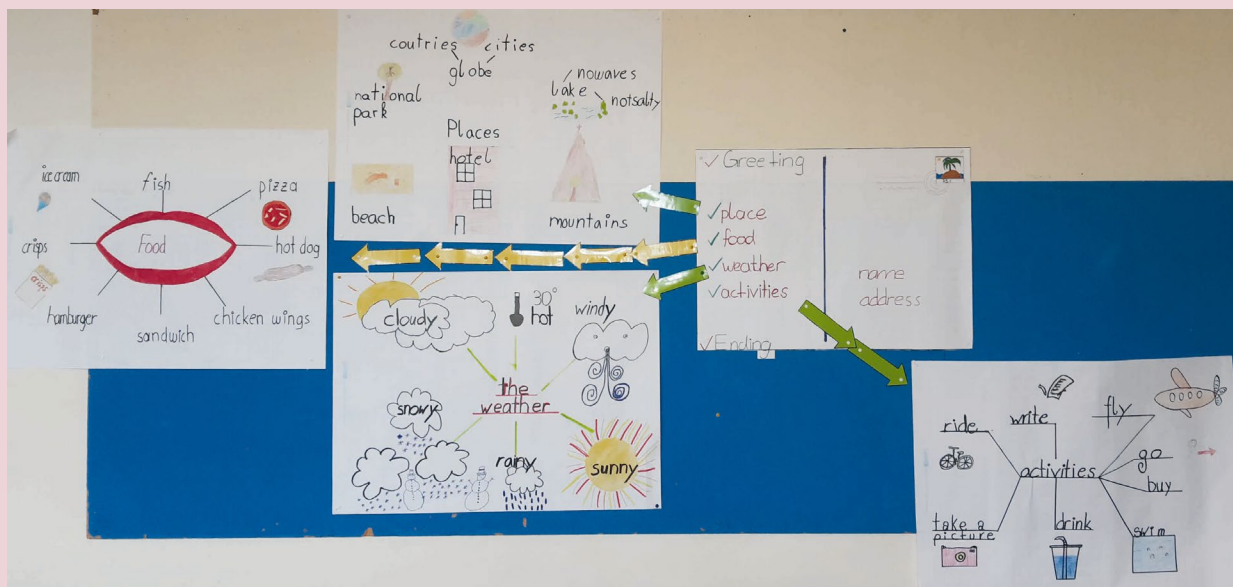 ice cream
fish
pizza
crips
Food
hot dog
crips
hamburger
sandwich
chicken wings
coutries cities
globe
national
park
nowaves
lake
notsalty
Places
hotel
beach
mountains
cloudy
30°
hot
windy
the
weather
snowy
rainy
sunny
✓ Greeting
✓place
✓food
✓weather
✓activities
✓Ending
name
address
ride
write
fly
activities
go
buy
take a
picture
drink
swim